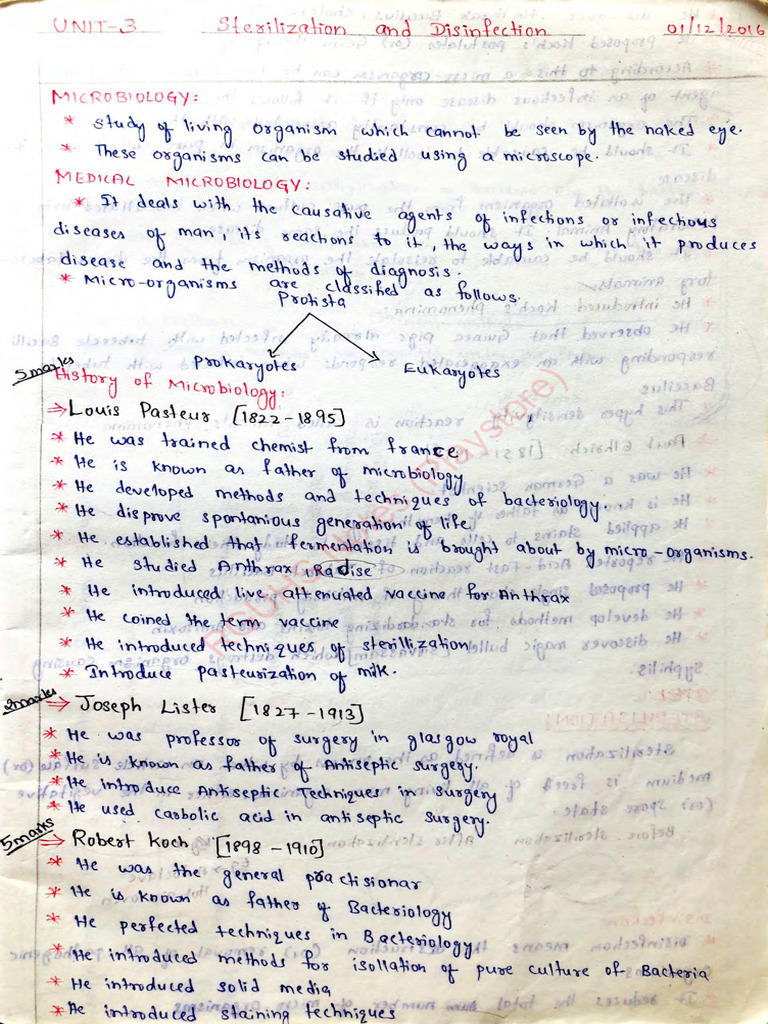 UNIT-3 Sterilization and Disinfection 01/12/2016
MICROBIOLOGY:
* Study of living organism which cannot be seen by the naked eye.
* These organisms can be studied using a microscope.
MEDICAL MICROBIOLOGY:
* It deals with the causative agents of infections or infectious
diseases of man, its reactions to it, the ways in which it produces
disease and the methods of diagnosis.
* Micro-organisms are classified as follows.
Protista
Prokaryotes Eukaryotes
5marks
History of Microbiology:
⇒ Louis Pasteur [1822-1895]
* He was trained chemist from france
* He is known as father of microbiology
* He developed methods and techniques of bacteriology.
* He disprove spontanious generation of life
* He established that fermentation is brought about by micro-organisms.
* He studied Anthrax, Radise
* He introduced live attenuated vaccine for Anthrax
* He coined the term vaccine
* He introduced techniques of sterillization
* Introduce Pasteurization of milk.
2marks ⇒ Joseph Lister [1827-1913]
* He was professor of surgery in glasgow royal
* He is known as father of Antiseptic surgery.
* He introduce Antiseptic Techniques in surgery
* He used carbolic acid in antiseptic surgery.
5marks ⇒ Robert Koch [1898-1910]
* He was the general practisionar
* He is known as father of Bacteriology
* He perfected techniques in Bacteriology
* He introduced methods for isollation of pure culture of Bacteria
* He introduced solid media
* He introduced staining techniques
(Playstore)